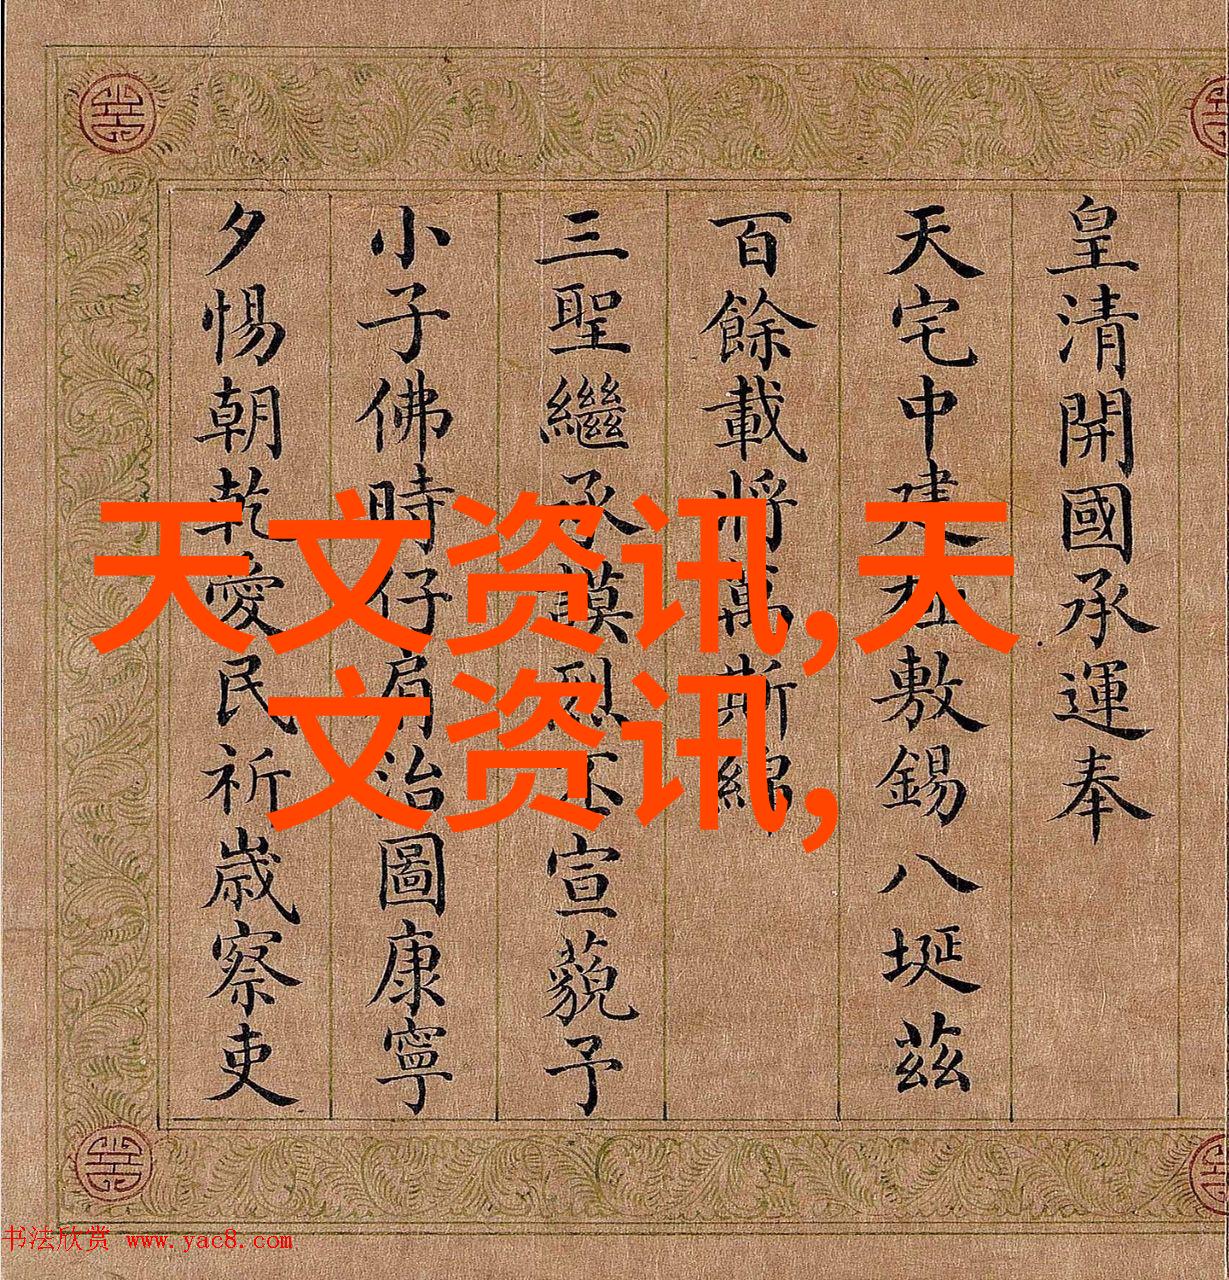 皇清開國承運奉
天宅中建極敷錫八埏茲
百餘載將萬斯綿
三聖繼承謨烈丕宣藐予
小子佛時仔肩治圖康寧
夕惕朝乾愛民祈歲察吏
天文资讯,天
文资讯,
书法欣赏 www.yac8.com